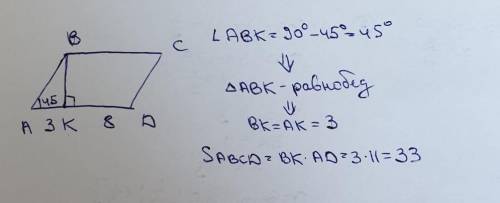 B
C
45
A 3 K 8 D
∠ABK = 90° - 45° = 45°
⇓
△ABK - равнобед
⇓
BK = AK = 3
SABCD = BK · AD = 3 · 11 = 33